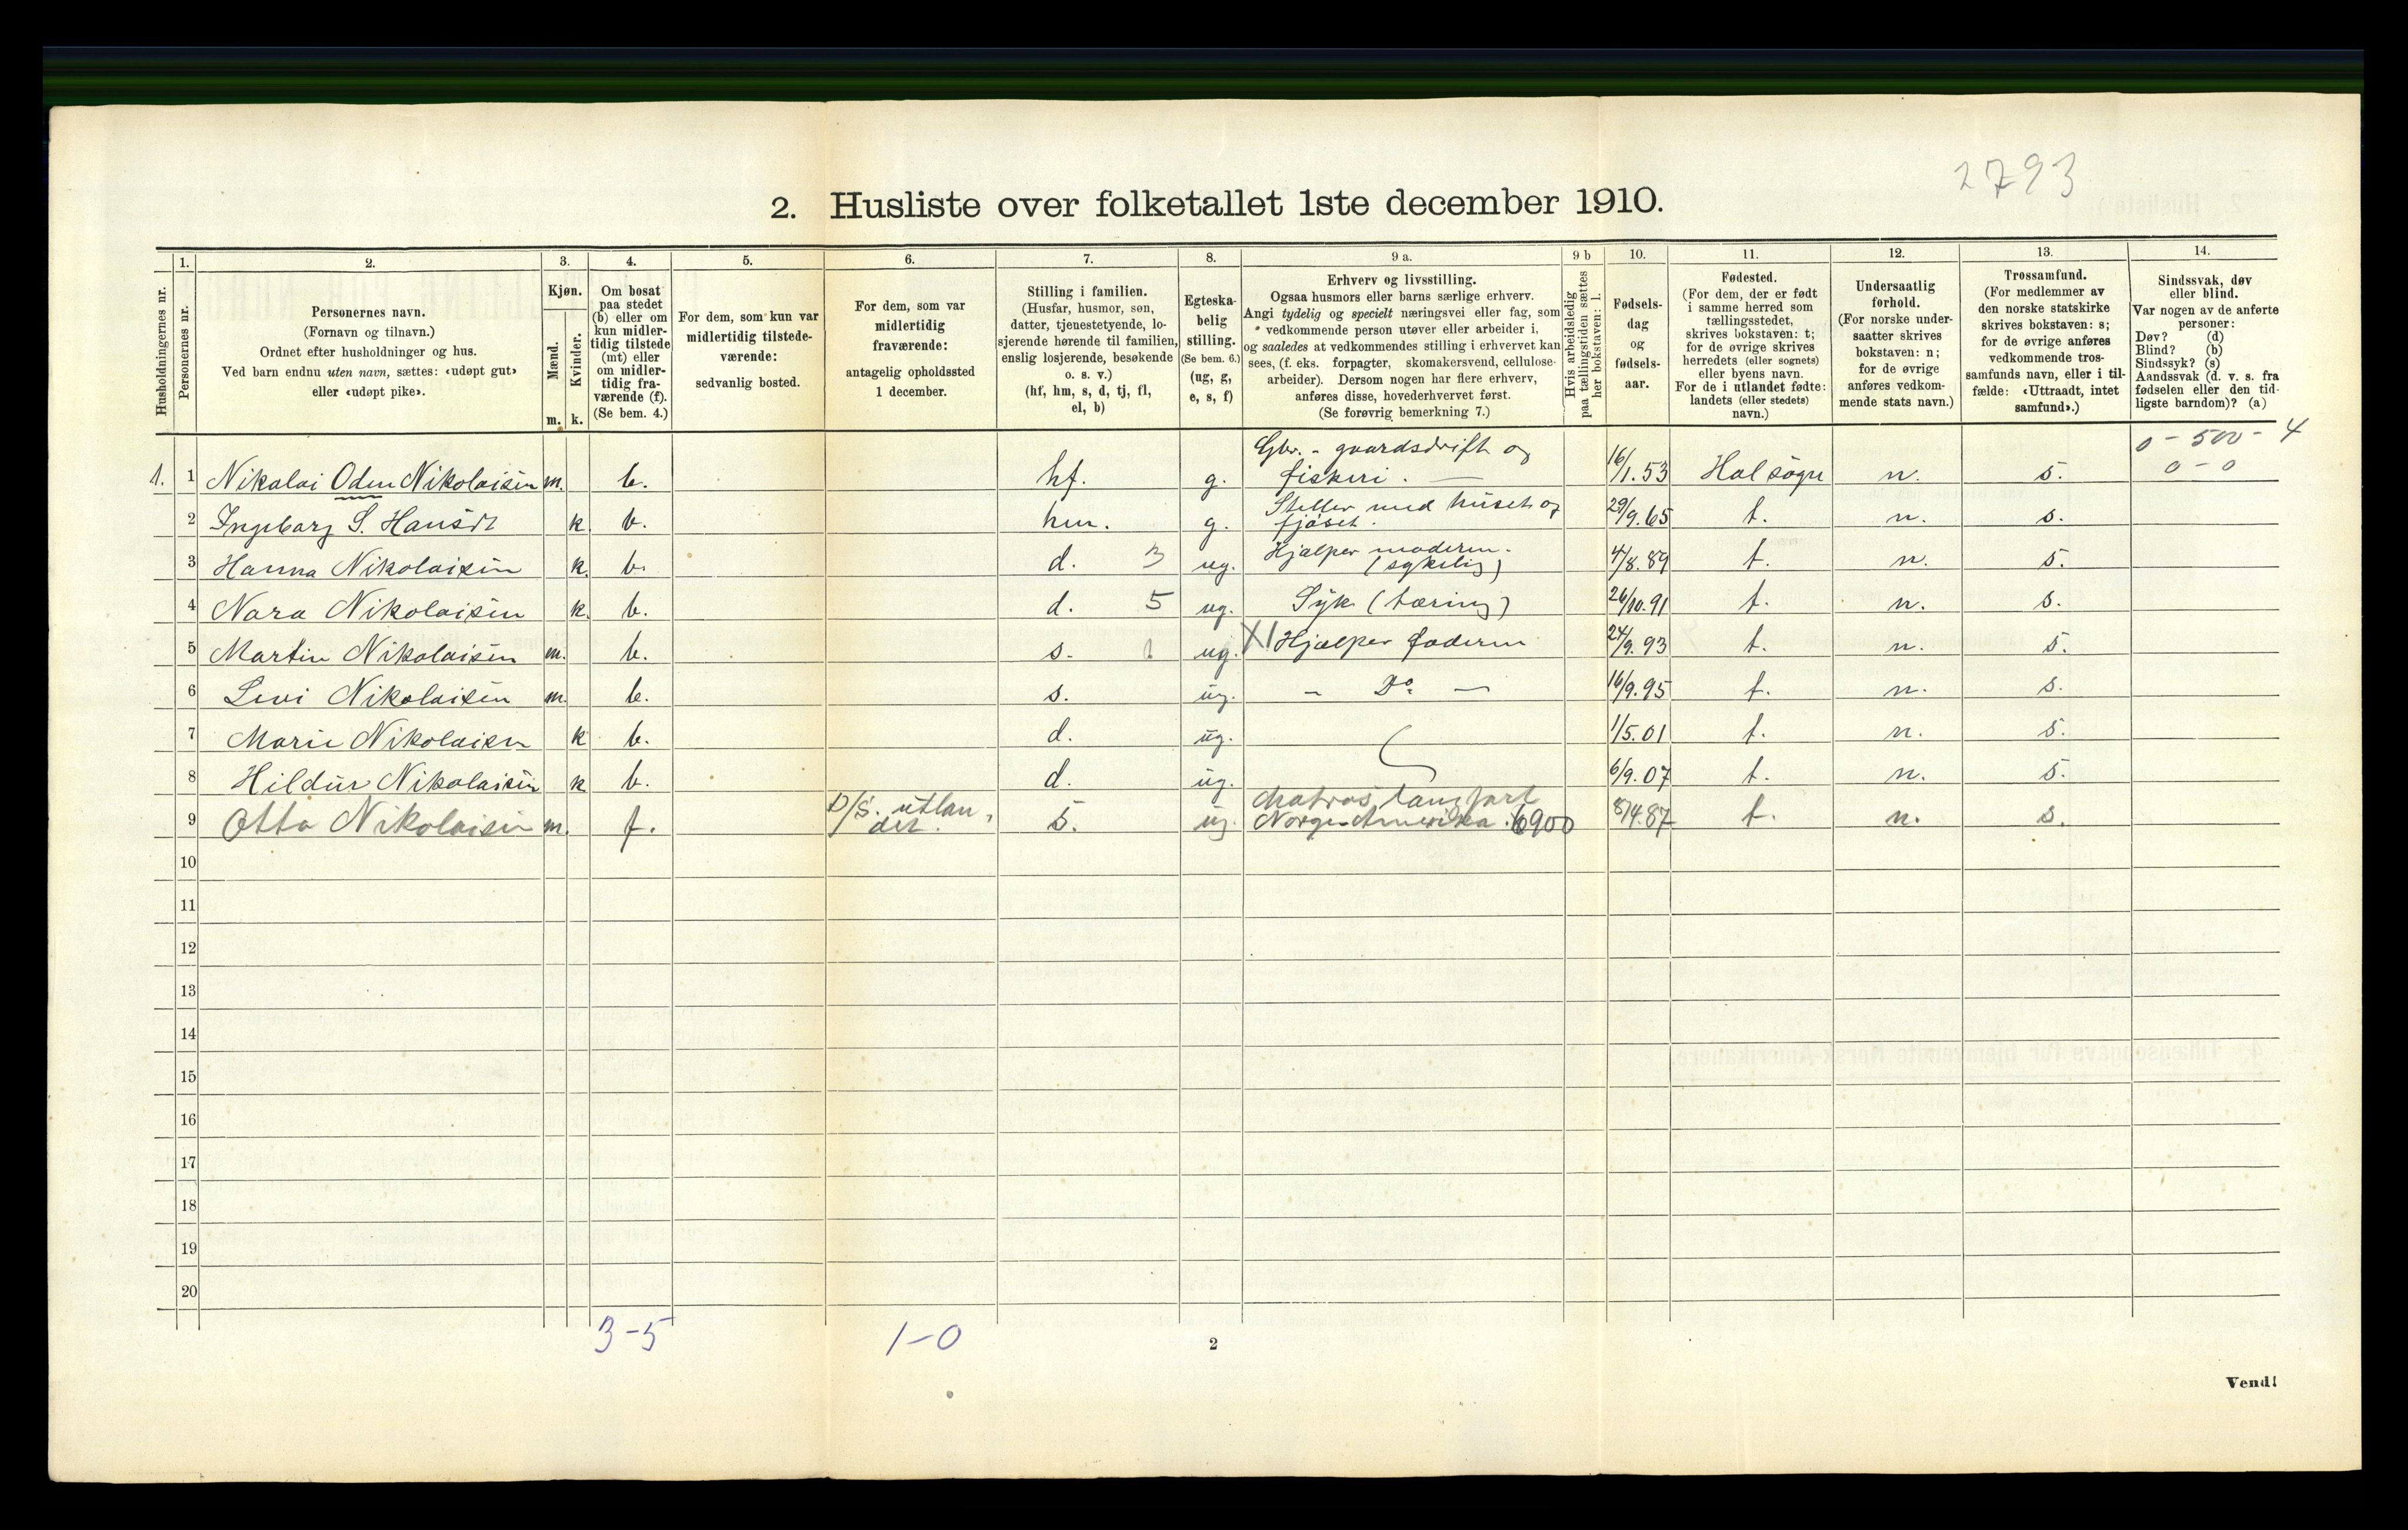 2793
2. Husliste over folketallet 1ste december 1910.
Husholdningernes nr.
1.
Personernes nr.
2.
Personernes navn.
(Fornavn og tilnavn.)
Ordnet efter husholdninger og hus.
Ved barn endnu uten navn, sættes: «udøpt gut»
eller «udøpt pike».
3.
Kjøn.
Mænd.
Kvinder.
m. k.
4.
Om bosat
paa stedet
(b) eller om
kun midler-
tidig tilstede
(mt) eller
om midler-
tidig fra-
værende (f).
(Se bem. 4.)
5.
For dem, som kun var
midlertidig tilstede-
værende:
sedvanlig bosted.
6.
For dem, som var
midlertidig
fraværende:
antagelig opholdssted
1 december.
7.
Stilling i familien.
(Husfar, husmor, søn,
datter, tjenestetyende, lo-
sjerende hørende til familien,
enslig losjerende, besøkende
o. s. v.)
(hf, hm, s, d, tj, fl,
el, b)
8.
Egteska-
belig
stilling.
(Se bem. 6.)
(ug, g,
e, s, f)
9 a.
Erhverv og livsstilling.
Ogsaa husmors eller barns særlige erhverv.
Angi tydelig og specielt næringsvei eller fag, som
vedkommende person utøver eller arbeider i,
og saaledes at vedkommendes stilling i erhvervet kan
sees, (f. eks. forpagter, skomakersvend, cellulose-
arbeider). Dersom nogen har flere erhverv,
anføres disse, hovederhvervet først.
(Se forøvrig bemerkning 7.)
9 b
Hvis arbeidsledig
paa tællingstiden sættes
her bokstaven: l.
10.
Fødsels-
dag
og
fødsels-
aar.
11.
Fødested.
(For dem, der er født
i samme herred som
tællingsstedet,
skrives bokstaven: t;
for de øvrige skrives
herredets (eller sognets)
eller byens navn.
For de i utlandet fødte:
landets (eller stedets)
navn.)
12.
Undersaatlig
forhold.
(For norske under-
saatter skrives
bokstaven: n;
for de øvrige
anføres vedkom-
mende stats navn.)
13.
Trossamfund.
(For medlemmer av
den norske statskirke
skrives bokstaven: s;
for de øvrige anføres
vedkommende tros-
samfunds navn, eller i til-
fælde: «Uttraadt, intet
samfund».)
14.
Sindssvak, døv
eller blind.
Var nogen av de anførte
personer:
Døv? (d)
Blind? (b)
Sindssyk? (s)
Aandssvak (d. v. s. fra
fødselen eller den tid-
ligste barndom)? (a)
0 - 500 - 4
0 - 0
1. 1 Nikolai Oden Nikolaisen m. b. hf. g. Gbr. - gaardsdrift og
fiskeri. — 16/1.53 Hal sogn n. s.
2 Ingeborg S. Hansdt k. b. hm. g. Steller med huset og
fjøset. 29/9.65 t. n. s.
3 Hanna Nikolaisen k. b. d. 3 ug. Hjælper moderen.
(sykelig) 4/8.89 t. n. s.
4 Nara Nikolaisen k. b. d. 5 ug. Syk (tæring) 26/10.91 t. n. s.
5 Martin Nikolaisen m. b. s. 1 ug. X1 Hjælper faderen 24/9.93 t. n. s.
6 Levi Nikolaisen m. b. s. ug. - Do - 16/9.95 t. n. s.
7 Marie Nikolaisen k b. d. ug. 1/5.01 t. n. s.
8 Hildur Nikolaisen k b. d. ug. 6/9.07 t. n. s.
9 Otto Nikolaisen m. f. D/S. utlan-
det. s. ug. Matros, langfart
Norge-Amerika. 6900 8/4.87 t. n. s.
10
11
12
13
14
15
16
17
18
19
20
3-5
1-0
2
Vend!